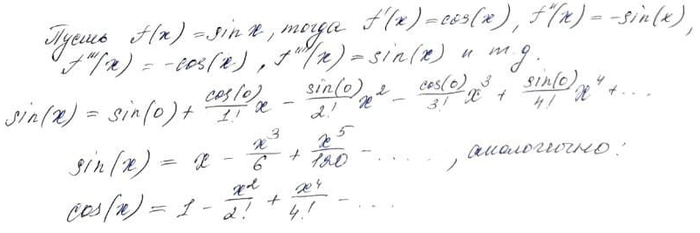 Пусть f(x) = sin x, тогда f'(x) = cos(x), f''(x) = -sin(x),
f'''(x) = -cos(x), f''''(x) = sin(x) и т.д.
sin(x) = sin(0) + \frac{cos(0)}{1!} x - \frac{sin(0)}{2!} x^2 - \frac{cos(0)}{3!} x^3 + \frac{sin(0)}{4!} x^4 + ...
sin(x) = x - \frac{x^3}{6} + \frac{x^5}{120} - ....., аналогично:
cos(x) = 1 - \frac{x^2}{2!} + \frac{x^4}{4!} - ....